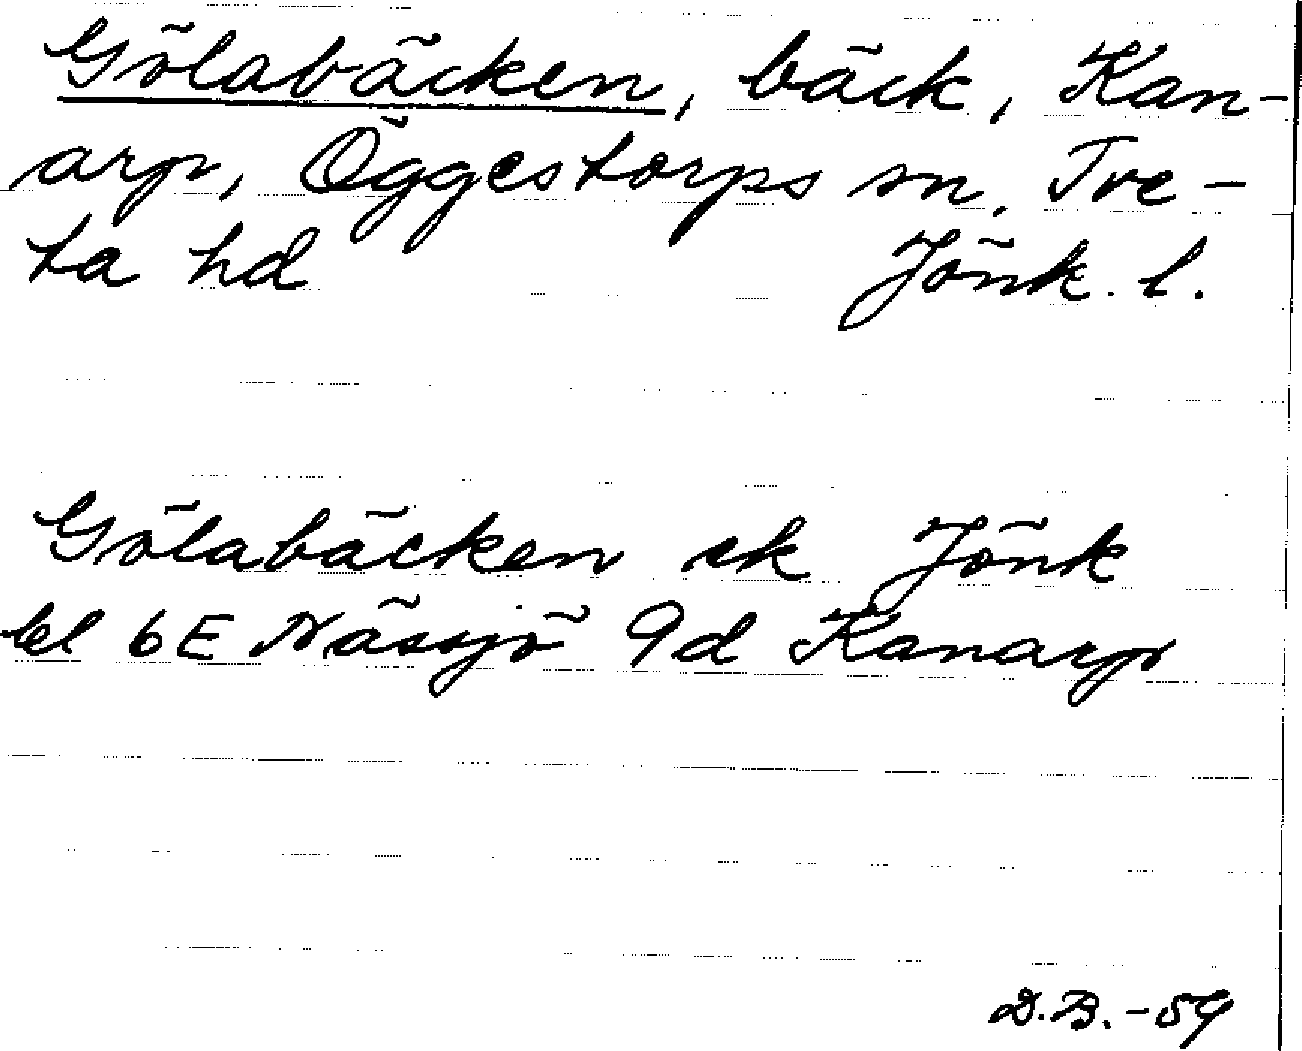 Gölabäcken, bäck, Kan-
arp, Öggestorps sn. Tve-
ta hd Jönk. l.
Gölabäcken ek Jönk
bl 6E Nässjö 9d Kanarp
D.B. -59